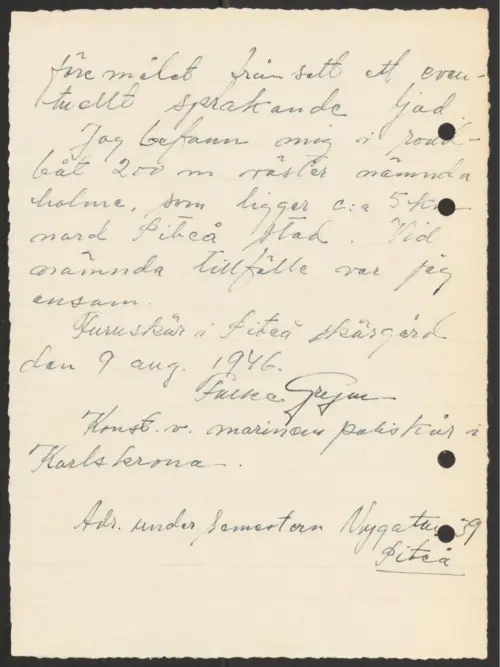 föremålet frånsett ett even-
tuellt sprakande ljud.
Jag befann mig i rodd-
båt 200 m väster nämnda
holme, som ligger c:a 5 km
nord Piteå stad. Vid
nämnda tillfälle var jag
ensam.
Furuskär i Piteå skärgård
den 9 aug. 1946.
Konst. v. marinens poliskår i
Karlskrona.
Adr. under semestern Nygatan 59
Piteå